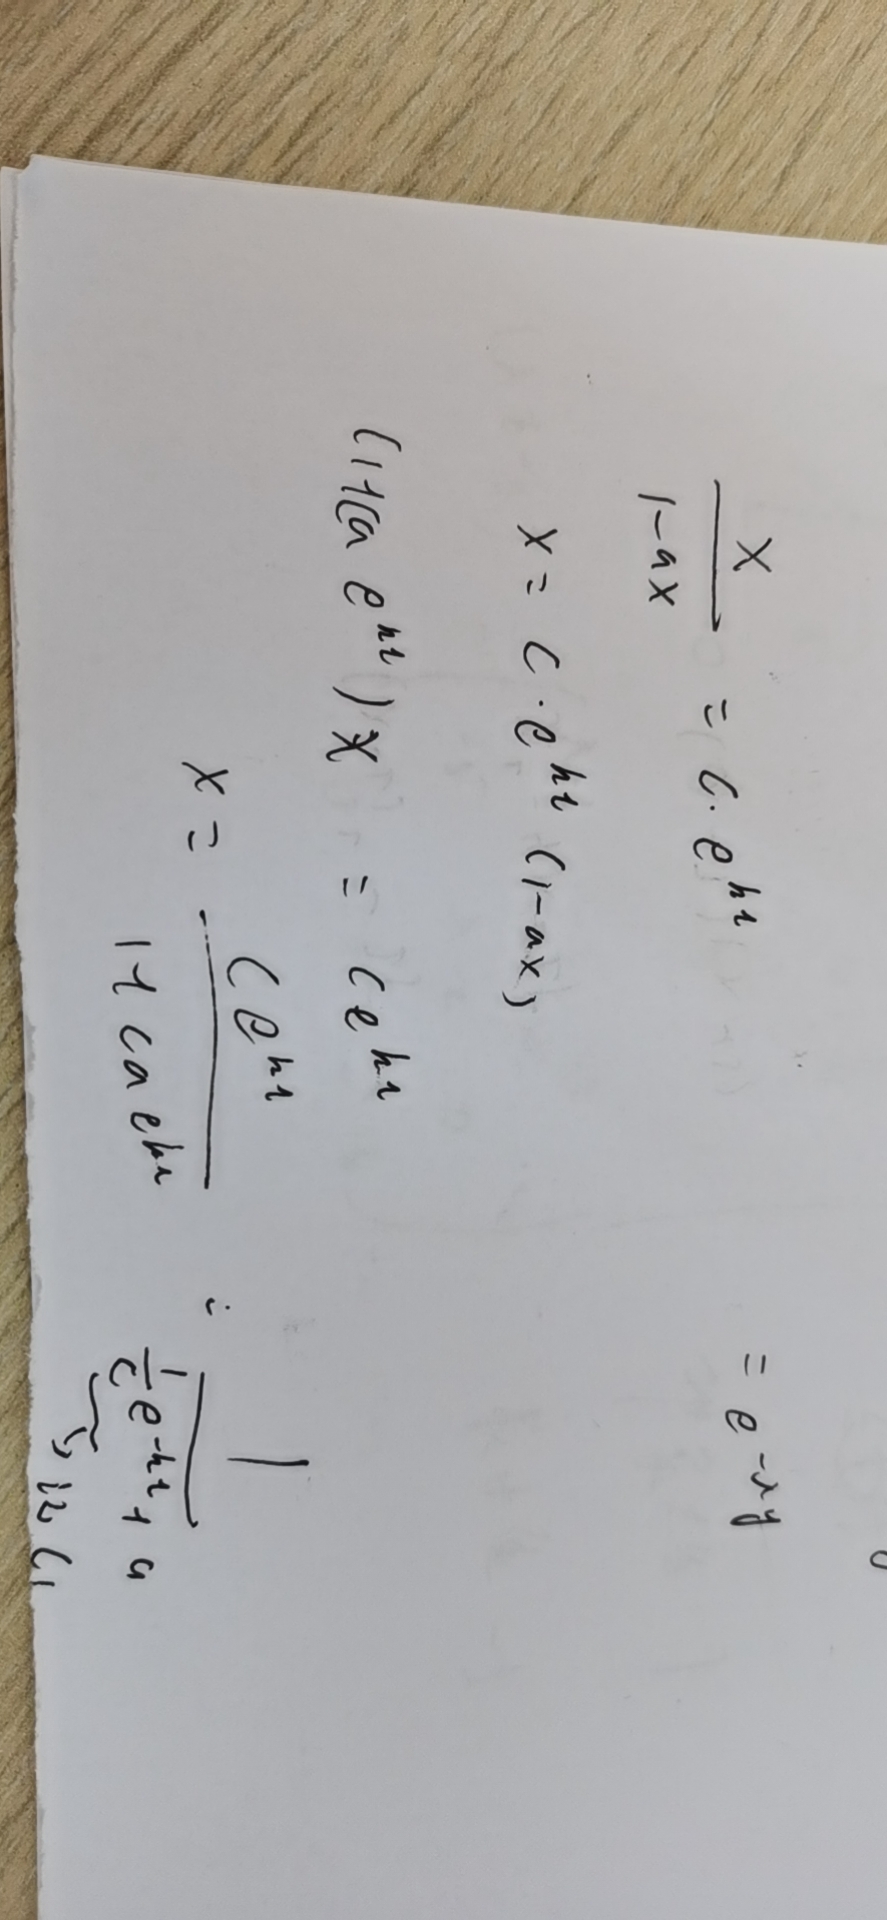 x/(1-ax) = c·e^{ht}
= e^{-λy}
x = c·e^{ht}(1-ax)
(1+ca e^{ht})x = ce^{ht}
x = ce^{ht}/(1+cae^{ht}) = 1/(1/c e^{-ht}+a)
记 C₁